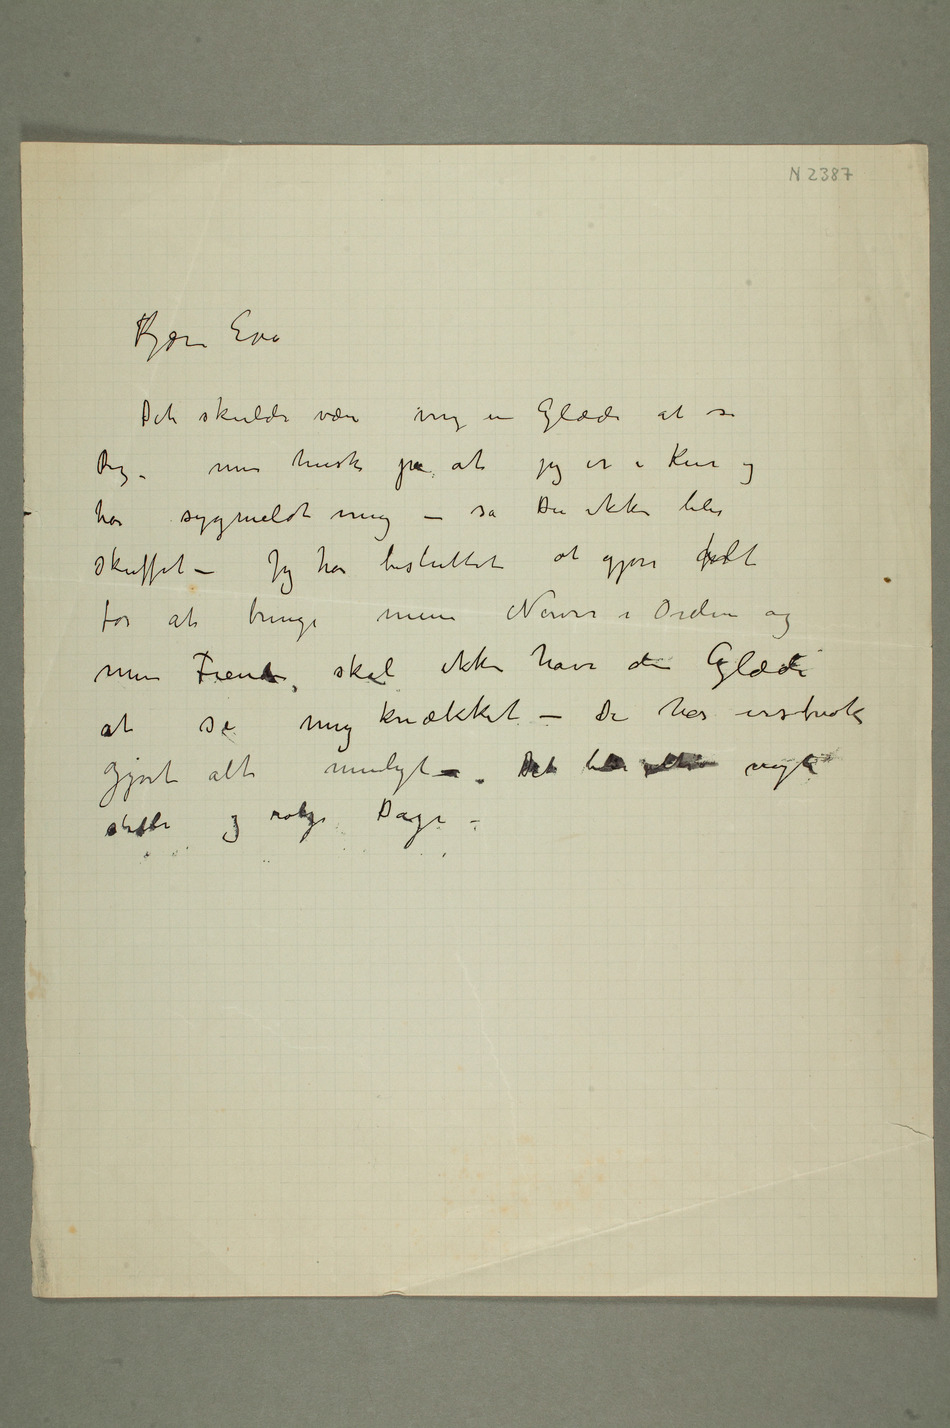 N 2387
Kjære Eva
Det skulde være mig en Glæde at se
Dig – men husk på at jeg er i Kur og
har sygmeldt mig – så Du ikke blir
skuffet – Jeg har besluttet at gjøre alt
for at bringe mine Nerver i Orden og
mine Fiender skal ikke have den Glæde
at se mig knækket – De har
gjort alt muligt – Det blir
stille og rolige Dage –